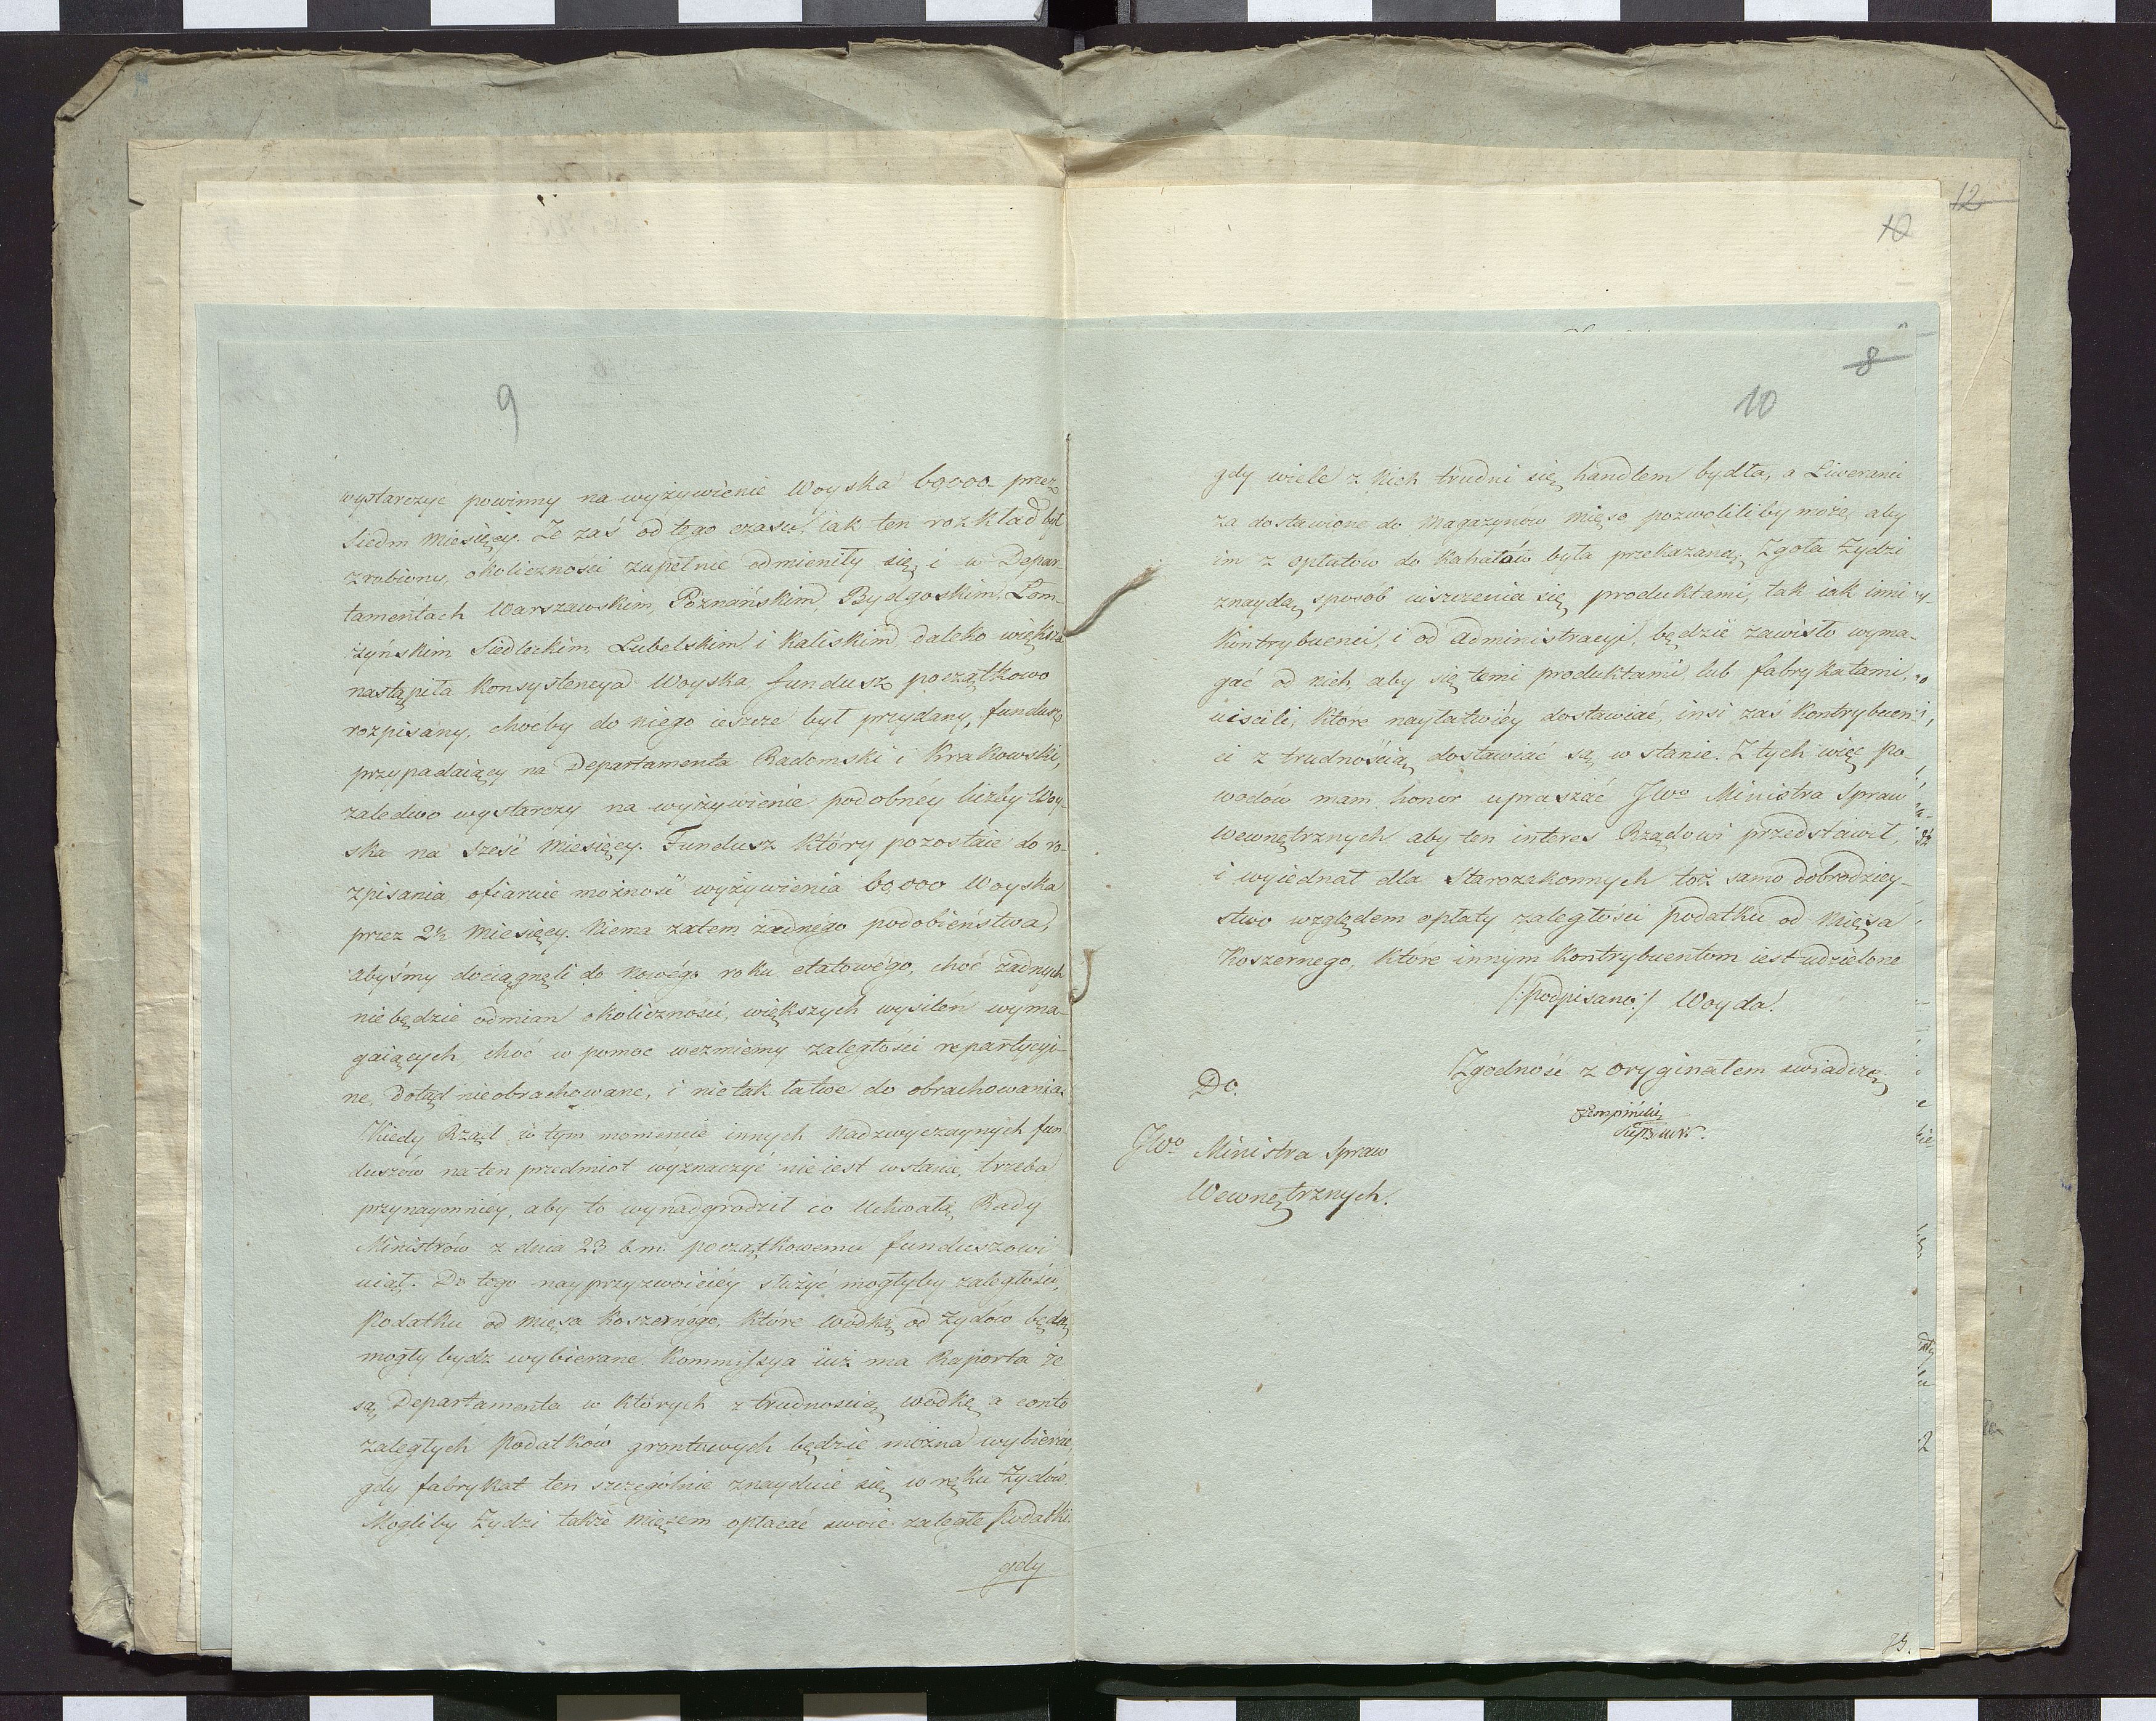 9
wystarczyć powinny na wyżywienie Woyska 60,000 przez
Siedm Miesięcy. Że zaś od tego czasu, iak ten rozkład był
zrobiony, okoliczności zupełnie odmieniły się, i w Depar-
tamentach Warszawskim, Poznańskim, Bydgoskim, Łom-
żyńskim Siedleckim, Lubelskim i Kaliskim daleko większa
nastąpiła Konsystencya Woyska, fundusz początkowo
rozpisany, choćby do niego ieszcze był przydany, fundusz
przypadaiący na Departamenta Radomski i Krakowski,
zaledwo wystarczy na wyżywienie podobnéy liczby Woy-
ska na sześć Miesięcy. Fundusz który pozostaie do ro-
zpisania ofiaruie możność wyżywienia 60,000 Woyska
przez 2½ Miesięcy. Niema zatem żadnégo podobieństwa,
abyśmy dociągnęli do nowégo roku etatowégo, choć żadnych
niebędzie odmian okoliczności, większych wysileń wyma-
gaiących, choć w pomoc weźmiemy zaległości repartycyi-
ne, dotąd nieobrachowane, i nie tak łatwe do obrachowania.
Kiedy Rząd w tym momencie innych Nadzwyczaynych fun-
duszów na ten przedmiot wyznaczyć nie iest w stanie, trzeba
przynaymniey, aby to wynadgrodził co Uchwałą Rady
Ministrów z dnia 23 b.m. początkowemu funduszowi
uiął. Do tego nayprzyzwoiciéy służyć mogłyby zaległości,
Podatku od Mięsa Koszernégo, które wódką od Żydów będą
mogły bydź wybierane. Kommissya iuż ma Raporta że
są Departamenta w których z trudnością wódkę a conto
zaległych Podatków grontowych będzie można wybierać,
gdy fabrykat ten szczególnie znayduie się w ręku Żydów.
Mogliby Żydzi także Mięsem opłacać swoie zaległe Podatki.
gdy
12
10
8
10
gdy wiele z nich trudni się handlem bydła, a Liweranci
za dostawione do Magazynów mięso pozwoliliby może aby
im z opłatów do Kahałów była przekazaną. Zgoła Żydzi
znaydą sposób uiszczenia się produktami, tak iak inni
Kontrybuenci, i od Administracyi będzie zawisło wyma-
gać od nich, aby się temi produktami lub fabrykatami,
uiścili, które nayłatwiéy dostawiać, insi zaś Kontrybuen-
ci z trudnością dostawiać są w stanie. Z tych więc po-
wodów mam honor upraszać JWo Ministra Spraw
Wewnętrznych aby ten interes Rządowi przedstawił,
i wyiednał dla Starozakonnych toż samo dobrodziey-
stwo względem opłaty zaległości podatku od Mięsa
Koszernego, które innym Kontrybuentom iest udzielone
/:podpisano:/ Woyda.
Zgodność z oryginałem świadczę
Do.
JWo Ministra Spraw
Wewnętrznych.